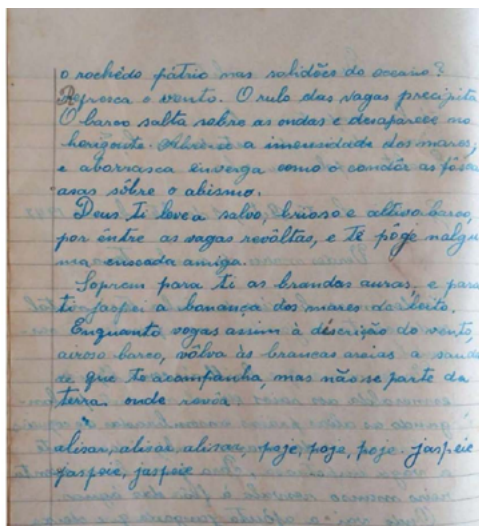 o rochêdo pátrio nas solidões do oceano?
Refresca o vento. O rulo das vagas precipita
O barco salta sobre as ondas e desaparece no
horizonte. Abre-se a imensidade dos mares;
e a borrasca enverga como o condôr as fôscas
asas sôbre o abismo.
Deus ti leve a salvo, brioso e altivo barco,
por éntre as vagas revôltas, e te pôge nalgu
ma enseada amiga.
Soprem para ti as brandas auras, e para
ti jaspei a bonança dos mares de leito.
Enquanto vogas assim à descrição do vento,
airoso barco, vôlva às brancas areias a sauda
de que te acompanha, mas não se parte da
terra onde revôa
alisar, alisar, alisar, poje, poje, poje. jaspeie
jaspeie, jaspeie